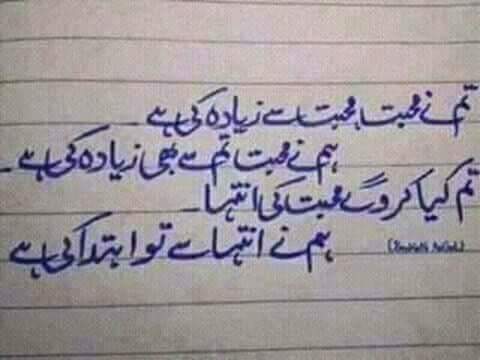 تم نے محبت، محبت سے زیادہ کی ہے
ہم نے محبت تم سے بھی زیادہ کی ہے
تم کیا کرو گے محبت کی انتہا
ہم نے انتہا سے تو ابتدا کی ہے